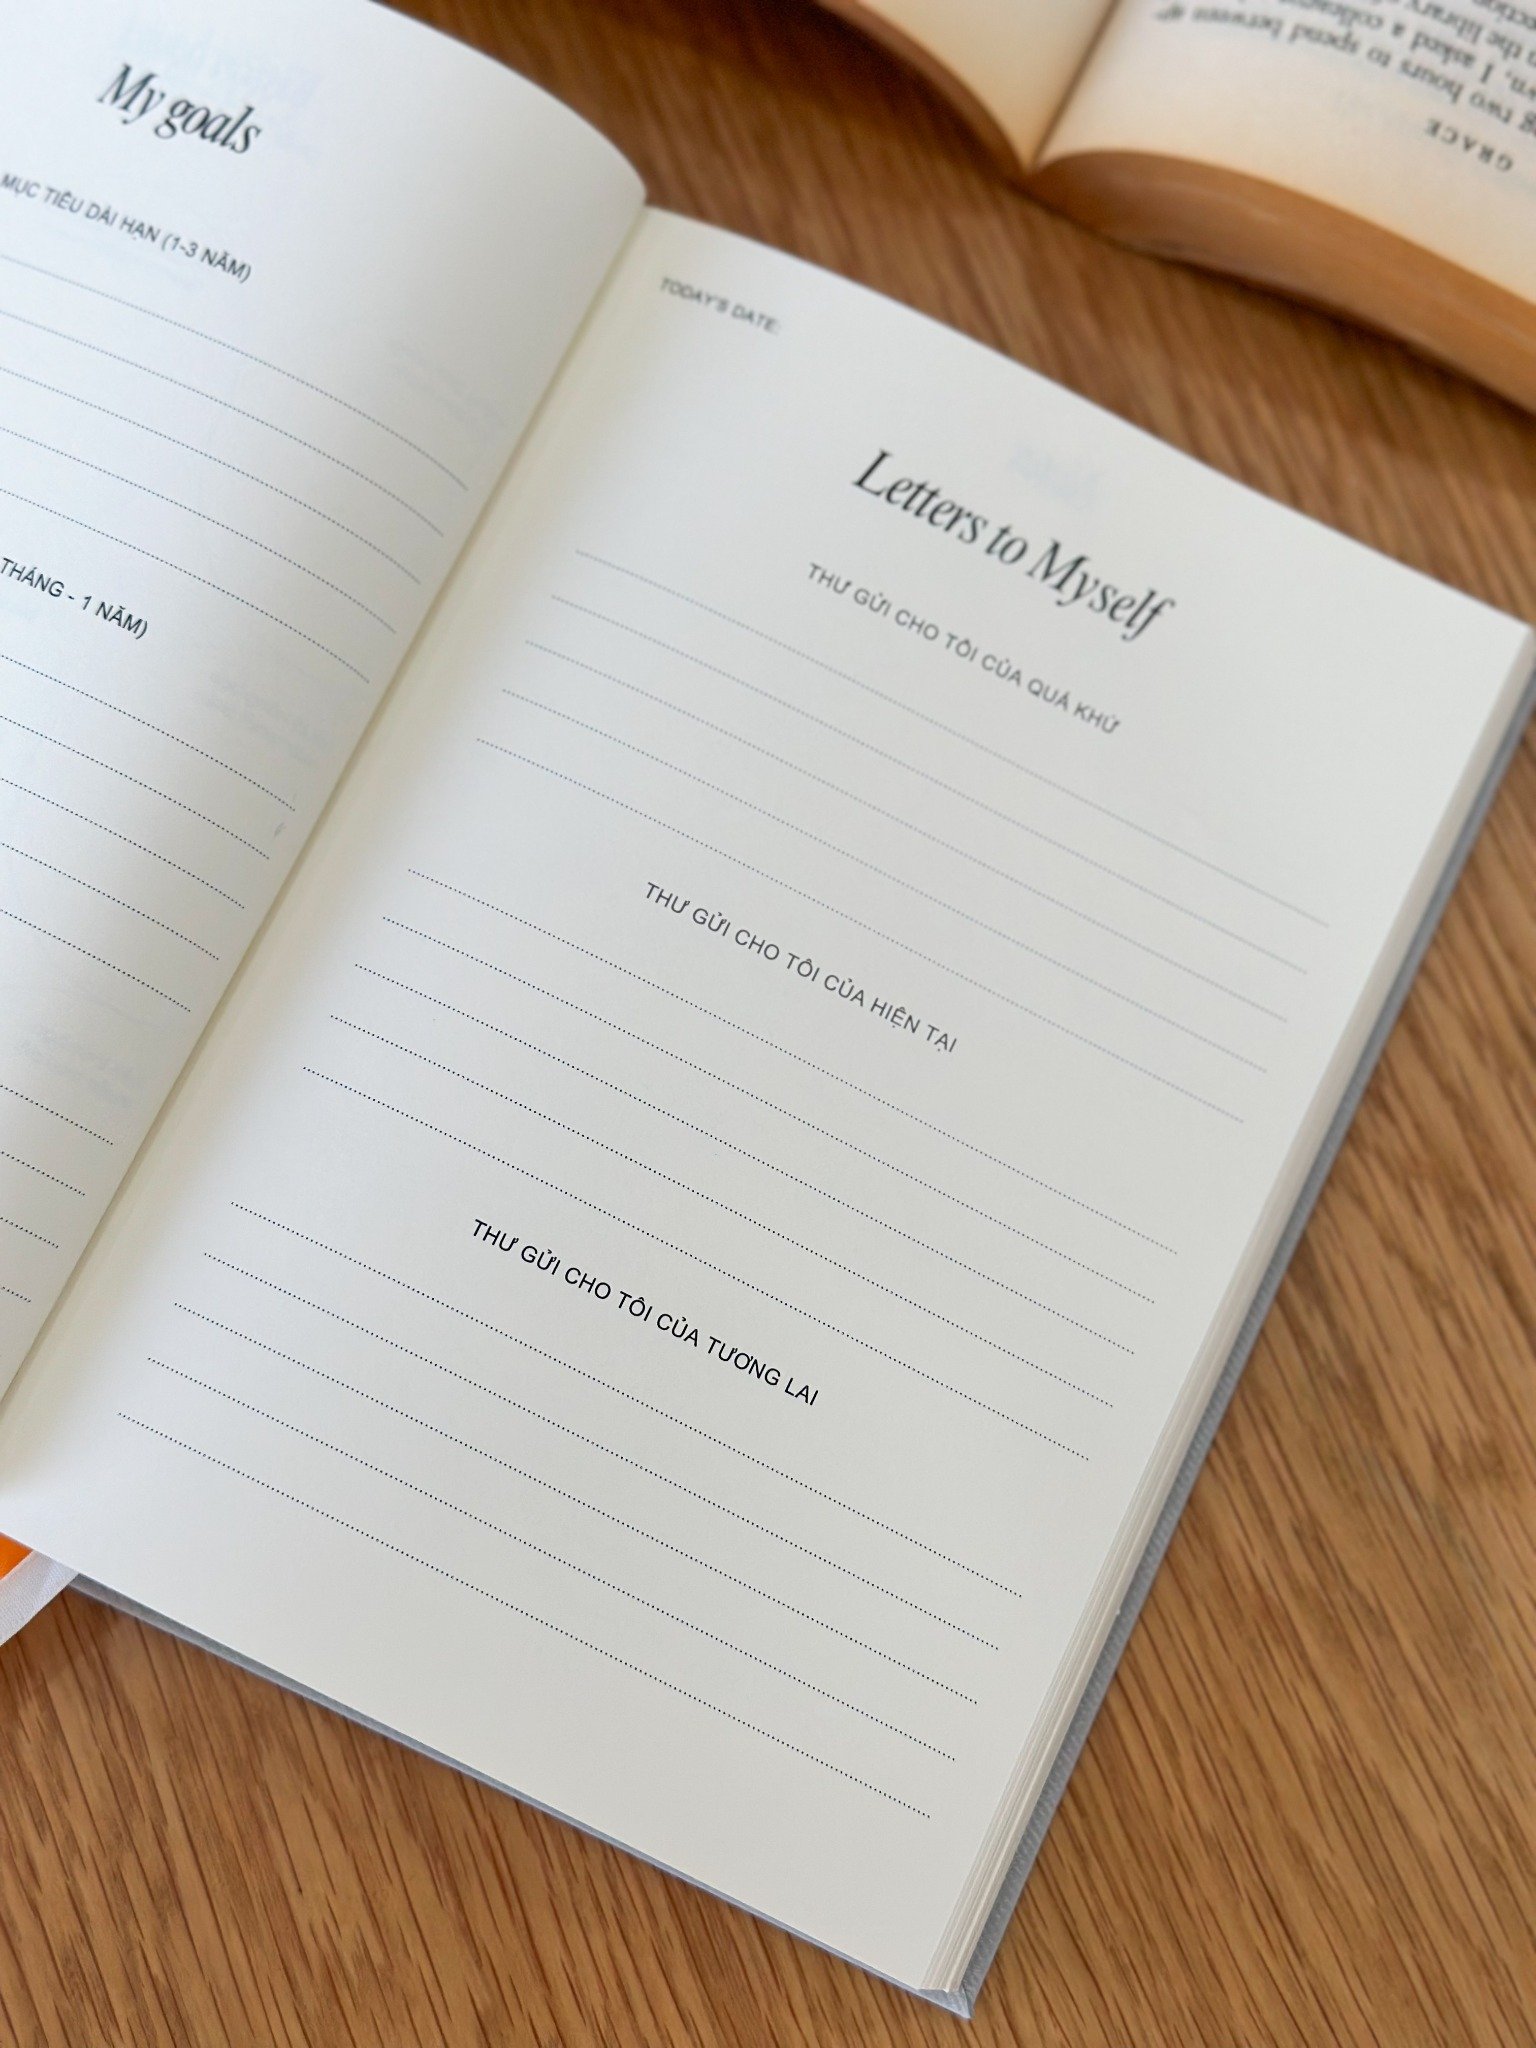 My goals
MỤC TIÊU DÀI HẠN (1-3 NĂM)
THÁNG - 1 NĂM)
TODAY'S DATE:
Letters to Myself
THƯ GỬI CHO TÔI CỦA QUÁ KHỨ
THƯ GỬI CHO TÔI CỦA HIỆN TẠI
THƯ GỬI CHO TÔI CỦA TƯƠNG LAI
GRACE
two hours to spend between
I asked a
the library